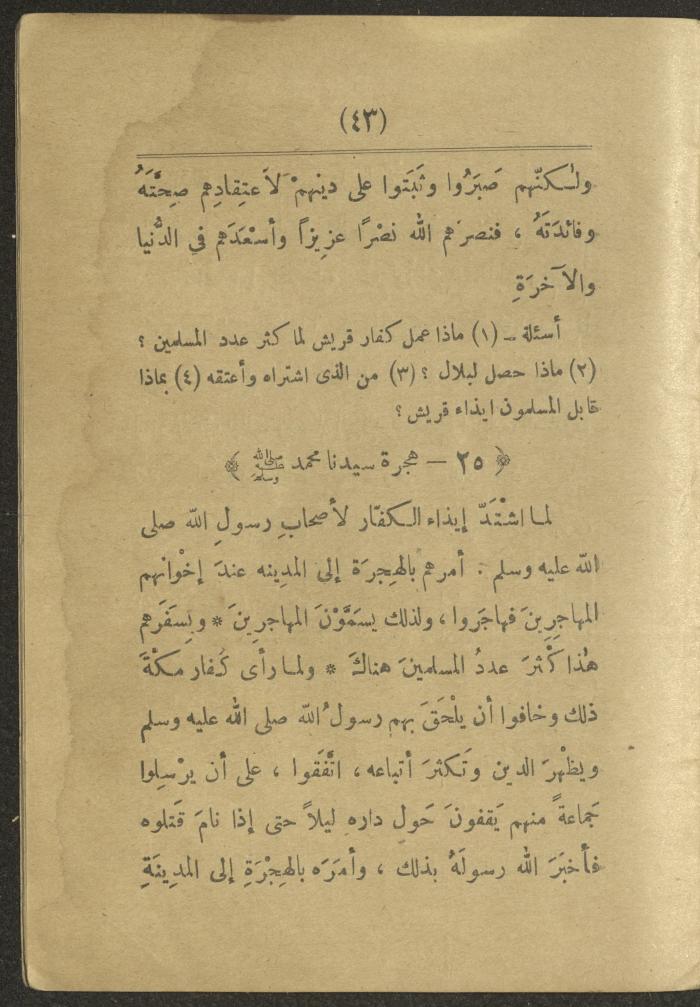 (٤٣)
ولٰكنّهم صَبَرُوا وثَبَتوا على دينهمْ لاَعتِقادِهم صِحَّتَهُ
وفائدَتَهُ ، فنصرَهم اللّه نصْرًا عزيزاً وأسْعَدَهم في الدُّنيا
والآخرَةِ
أسئلة ــ (١) ماذا عمل كفار قريش لما كثر عدد المسلمين ؟
(٢) ماذا حصل لبلال ؟ (٣) من الذى اشتراه وأعتقه (٤) بماذا
قابل المسلمون ايذاء قريش ؟
﴿ ٢٥ — هجرة سيدنا محمد ﷺ ﴾
لما اشْتَدّ إيذاء الكفّار لأصحابِ رسولِ اللّه صلى
اللّه عليه وسلم . أمرهم بالهجرَة إلى المدِينه عندَ إخْوانهم
المهاجِرِينَ فهاجَروا ، ولذلك يسَمَّوْنَ المهاجرِينَ * وبِسَفَرَهم
هٰذا كَثُرَ عددُ المسلمينَ هناكَ * ولما رأى كُفار مكةَ
ذلك وخافوا أن يلْحَقَ بهم رسولُ اللّه صلى اللّه عليه وسلم
ويظْهرَ الدين وتَكثرَ أتباعه ، اتَّفَقوا ، على أن يرْسِلوا
جَماعةً منهم يَقفونَ حَول داره ليلاً حتى إذا نامَ قَتلوه
فأخبَرَ اللّه رسولَهُ بذلك ، وأمرَه بالهِجْرَةِ إلى المدِينَةِ